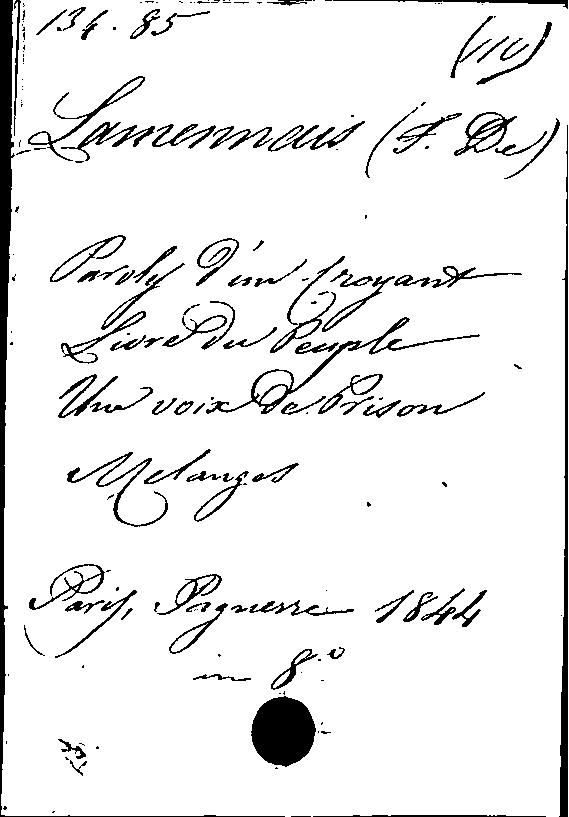 134.85
(IIV)
Lamennais (F. De)
Paroles d'un Croyant
Livre du Peuple
Une voix de Prison
Melanges
Paris, Pagnerre 1844
in 8.o